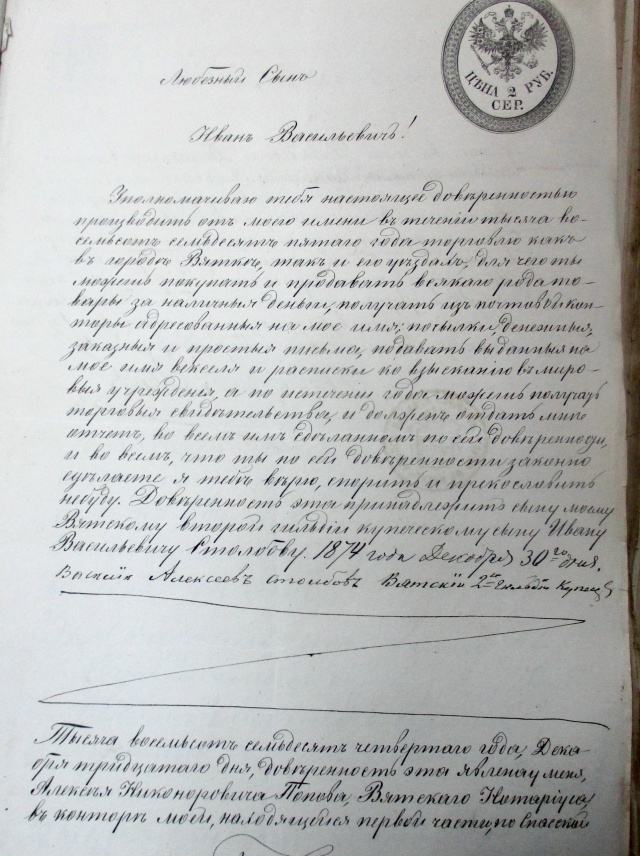 ЦѢНА 2 РУБ.
СЕР.
Любезный Сынъ
Иванъ Васильевичъ!
Уполномачиваю тебя настоящее довѣренностью
производить отъ моего имени въ теченіи тысяча во-
семьсотъ семьдесятъ пятаго года торговлю какъ
въ городѣ Вяткѣ, такъ и его уѣздахъ, для чего ты
можешь покупать и продавать всякаго рода то-
вары за наличныя деньги, получать изъ почтовой кон-
торы адресованныя на мое имя: посылки, денежныя,
заказныя и простыя письма, подавать выданныя на
мое имя векселя и расписки ко взысканію въ миро-
выя учрежденія, а по истеченіи года можешь получать
торговыя свидѣтельства, и долженъ отдать мнѣ
отчетъ, во всемъ имъ сдѣланномъ по сей довѣренности,
и во всемъ, что ты по сей довѣренности законно
сдѣлаешь я тебѣ вѣрю, спорить и прекословить
небуду. Довѣренность эта принадлежитъ сыну моему
Вятскому второй гильдіи купеческому сыну Ивану
Васильевичу Столбову. 1874 года Декабря 30го дня.
Василій Алексеевъ Столбовъ Вятскій 2й Гильдіи Купецъ
Тысяча восемьсотъ семьдесятъ четвертаго года, Дека-
бря тридцатаго дня, довѣренность эта явлена у меня,
Алексѣя Никоноровича Попова, Вятскаго Нотаріуса,
въ конторѣ моей, находящейся первой части, по Спасской